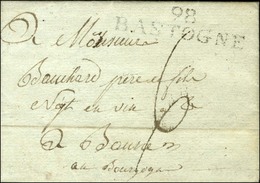 98
BASTOGNE
A Monsieur
Bouchard père et fils
Negt en vin
6
A Beaune
en Bourgogne